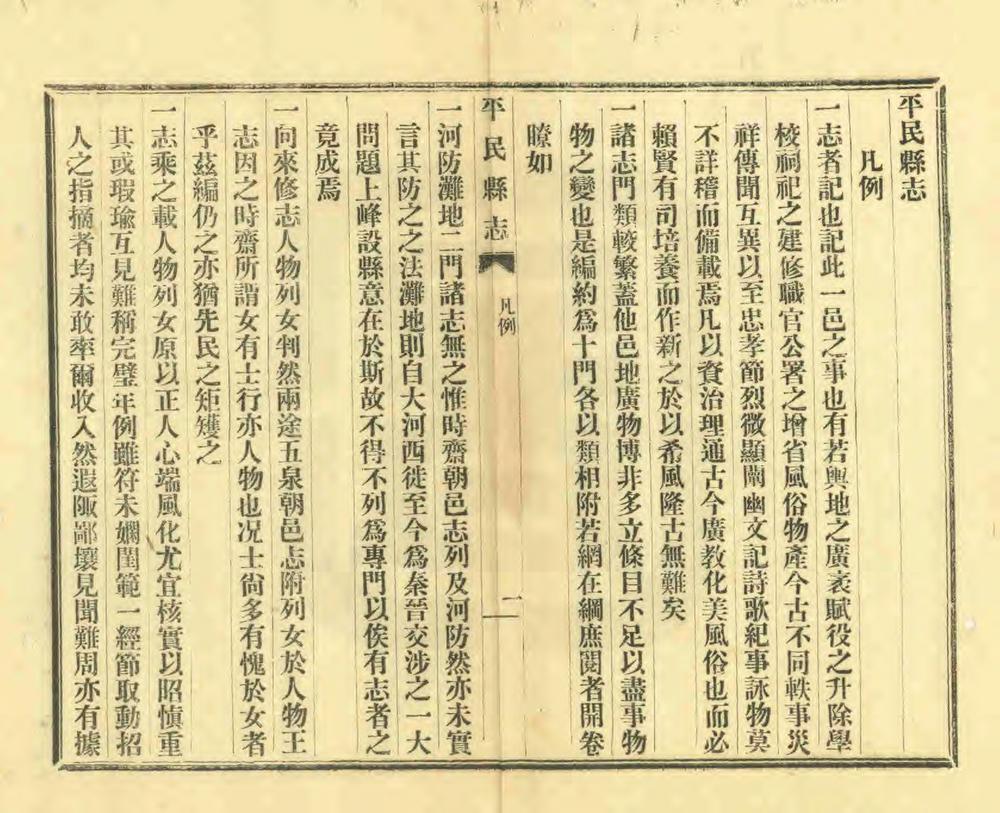 平民縣志
凡例
一志者記也記此一邑之事也有若輿地之廣袤賦役之升除學
校祠祀之建修職官公署之增省風俗物產今古不同軼事災
祥傳聞互異以至忠孝節烈微顯闡幽文記詩歌紀事詠物莫
不詳稽而備載焉凡以資治理通古今廣教化美風俗也而必
賴賢有司培養而作新之於以希風隆古無難矣
一諸志門類較繁蓋他邑地廣物博非多立條目不足以盡事物
物之變也是編約爲十門各以類相附若網在綱庶閱者開卷
瞭如
平民縣志
凡例
一
一河防灘地二門諸志無之惟時齋朝邑志列及河防然亦未實
言其防之之法灘地則自大河西徙至今爲秦晉交涉之一大
問題上峰設縣意在於斯故不得不列爲專門以俟有志者之
竟成焉
一向來修志人物列女判然兩途五泉朝邑志附列女於人物王
志因之時齋所謂女有士行亦人物也况士尙多有愧於女者
乎茲編仍之亦猶先民之矩矱之
一志乘之載人物列女原以正人心端風化尤宜核實以昭愼重
其或瑕瑜互見難稱完璧年例雖符未嫻閨範一經節取動招
人之指摘者均未敢率爾收入然遐陬鄙壤見聞難周亦有據